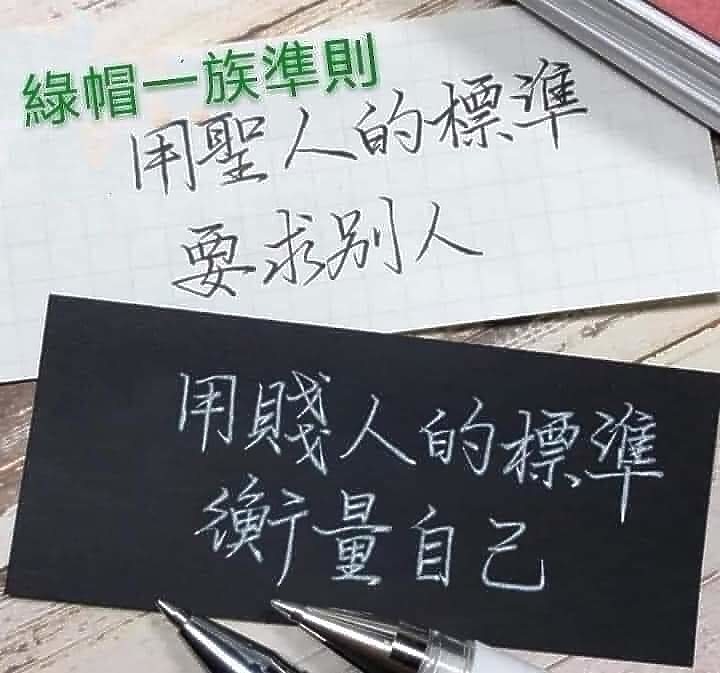 綠帽一族準則
用聖人的標準
要求别人
用賤人的標準
衡量自己